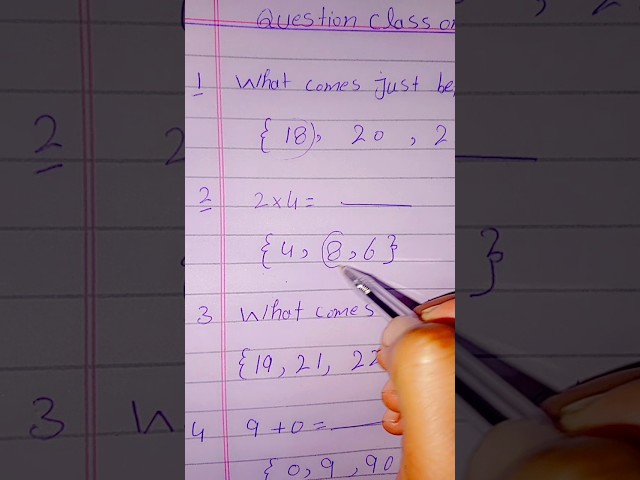 Question Class
1 What comes just
{ 18, 20 , 2
2 2x4= ____
{ 4, 8, 6 }
3 What comes
{19, 21, 22
4 9 +0= ____
{ 0, 9, 90